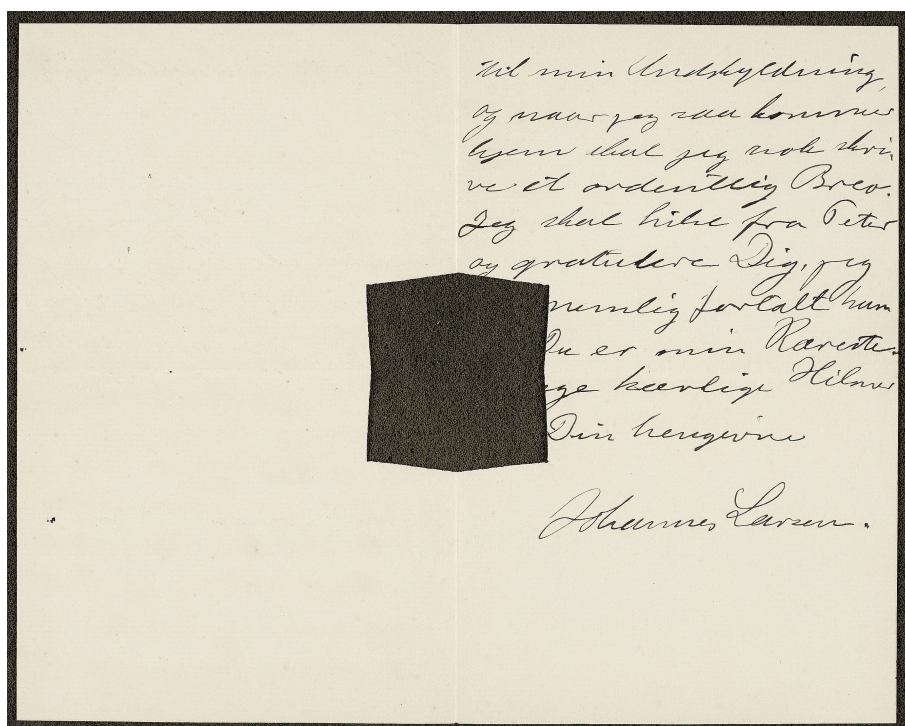 til min Undskyldning,
og naar jeg saa kommer
hjem skal jeg nok skri-
ve et ordentlig Brev.
Jeg skal hilse fra Peter
og gratulere Dig, jeg
nemlig fortalt ham
Du er min Kæreste.
ge kærlige Hilsner
Din hengivne
Johannes Larsen.